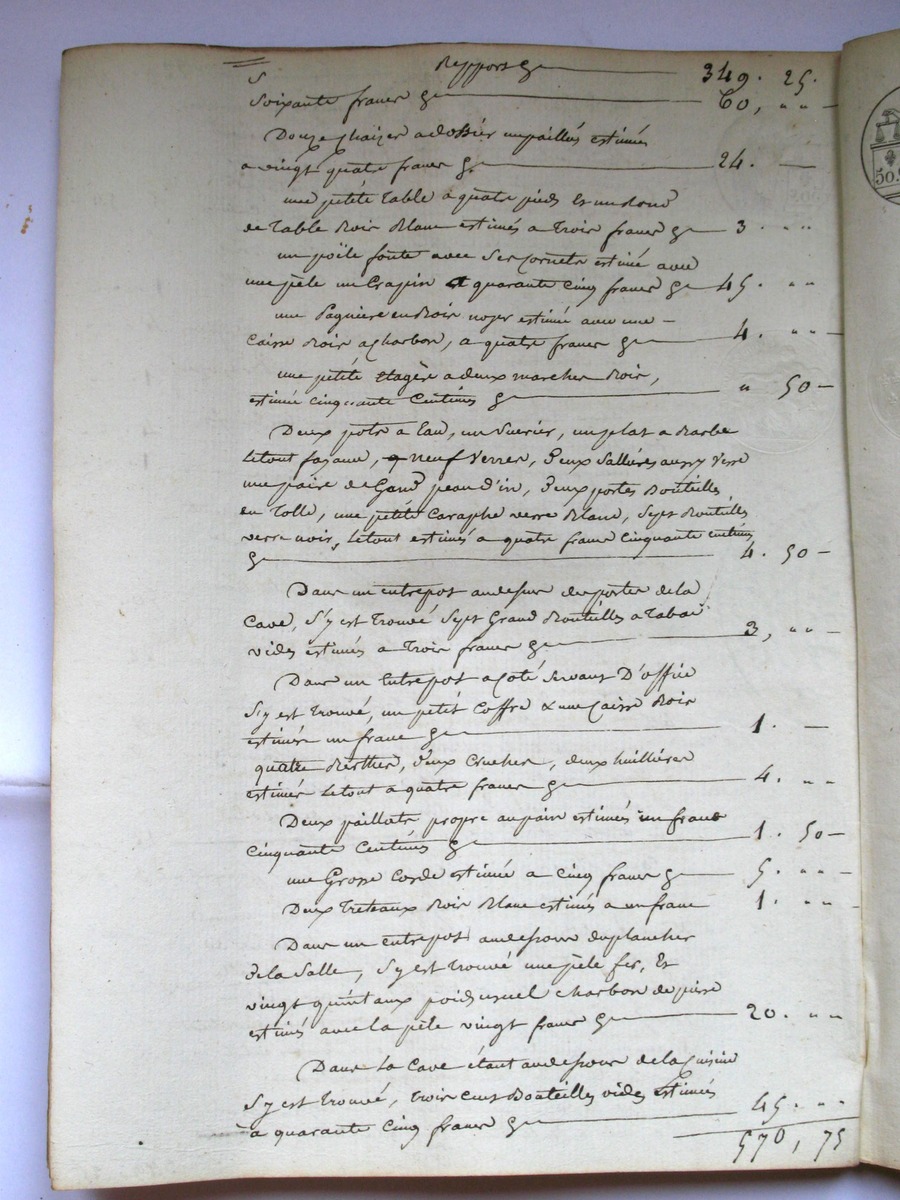 Rapport 349. 25.
Soixante francs 60, " " —
Douze chaizes a dossier empaillés estimés
a vingt quatre francs 24. —
une petite table a quatre pieds et un rond
de table Bois Blanc estimés a trois francs 3. " "
un poële fonte avec ses cornets estimé avec
une pèle un Crapin a quarante cinq francs 45. " "
une Pagniere en Bois noyer estimée avec une –
Caisse Bois a charbon, a quatre francs 4. " " —
une petite Etagère a deux marches Bois,
estimée cinquante Centimes " 50 —
Deux pots a Eau, un sucrier, un plat a Barbe
le tout fayance, neuf Verres, deux sallières aussy verre
une paire de Gand peau d'in, deux portes Bouteilles
en Tolle, une petite Caraphe verre Blanc, sept Bouteilles
verre noir, le tout estimés a quatre francs cinquante centimes
4. 50 —
Dans un entrepot au dessus des portes de la
Cave, s'y est trouvé sept Grand Bouteilles a Tabac
vides estimés a trois francs 3, " " —
Dans un Entrepot a coté servant D'office
s'y est trouvé, un petit Coffre & une Caisse Bois
estimés un franc 1. —
quatre Berthes, deux cruches, deux huillières
estimés le tout a quatre francs 4. " "
Deux paillats propre au pain estimés un franc
cinquante Centimes 1. 50 —
une Grosse Corde estimée a cinq francs 5. " " —
Deux Treteaux Bois Blanc estimés a un franc 1. " " —
Dans un entrepot au dessous du plancher
de la Salle, s'y est trouvé une pèle fer, Et
vingt quintaux poids usuel charbon de pierre
estimés avec la pèle vingt francs 20. " "
Dans La Cave étant au dessous de la Cuisine
s'y est trouvé, trois cens Bouteilles vides estimées
à quarante cinq francs 45. " "
570, 75
50.